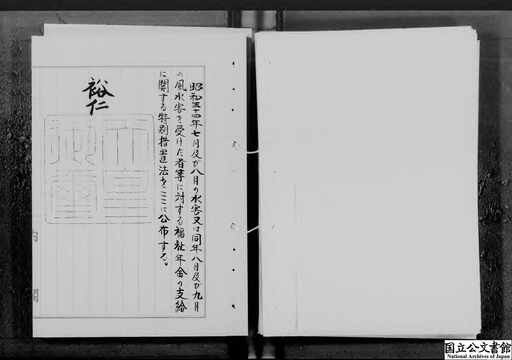 昭和三十四年七月及び八月の水害又は同年八月及び九月
の風水害を受けた者等に対する福祉年金の支給
に関する特別措置法をここに公布する。
裕仁
天皇
御璽
内閣
国立公文書館
National Archives of Japan